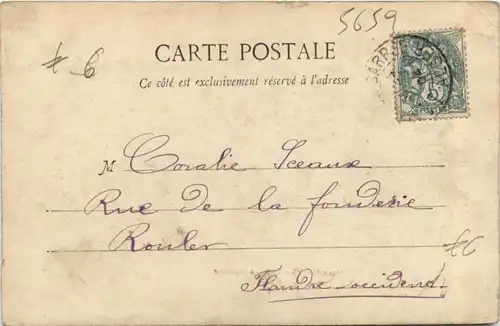 5659
CARTE POSTALE
# 6
Ce côté est exclusivement réservé à l'adresse
M Coralie Sceaux
Rue de la fonderie
Rouler
€6
Flandre occident.